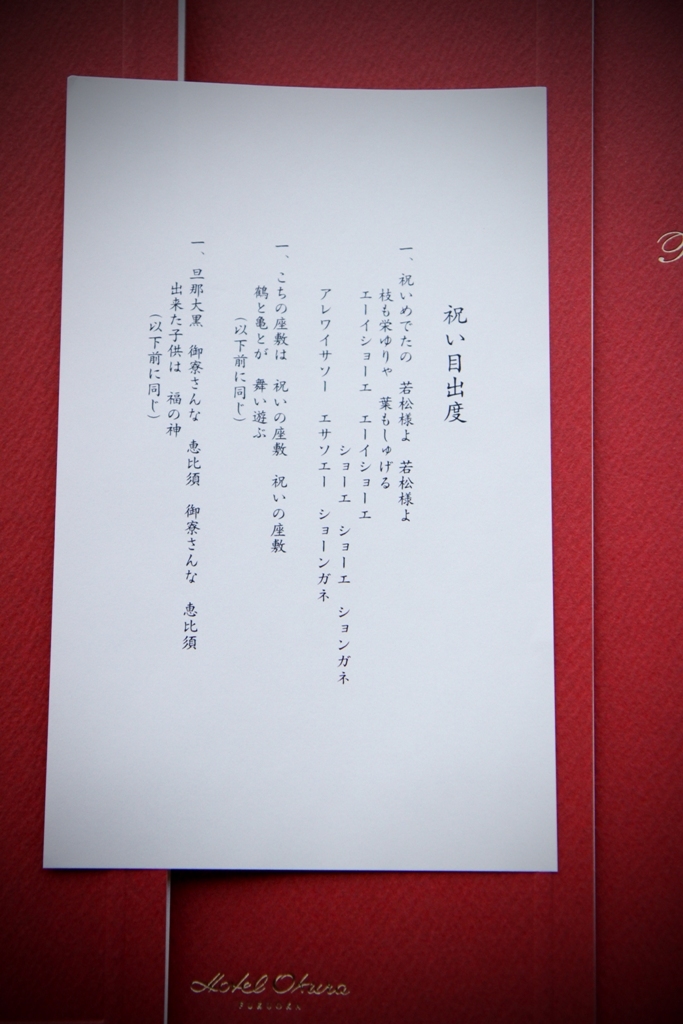 祝い目出度
一、祝いめでたの　若松様よ　若松様よ
枝も栄ゆりゃ　葉もしゅげる
エーイショーエ　エーイショーエ
ショーエ　ショーエ　ションガネ
アレワイサソー　エサソエー　ショーンガネ
一、こちの座敷は　祝いの座敷　祝いの座敷
鶴と亀とが　舞い遊ぶ
（以下前に同じ）
一、旦那大黒　御寮さんな　恵比須　御寮さんな　恵比須
出来た子供は　福の神
（以下前に同じ）
Hotel Okura
FUKUOKA